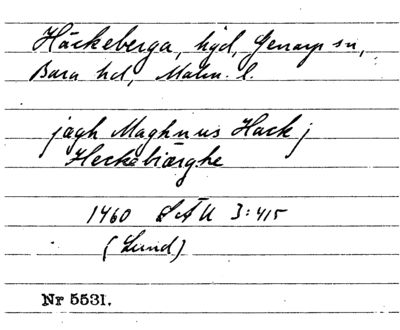 Häckeberga, hgd, Genarp sn,
Bara hd, Malm. l.
jagh Maghnus Hack j
Heckebiærghe
1460 SÄU 3:415
(Lund)
Nr 5531.